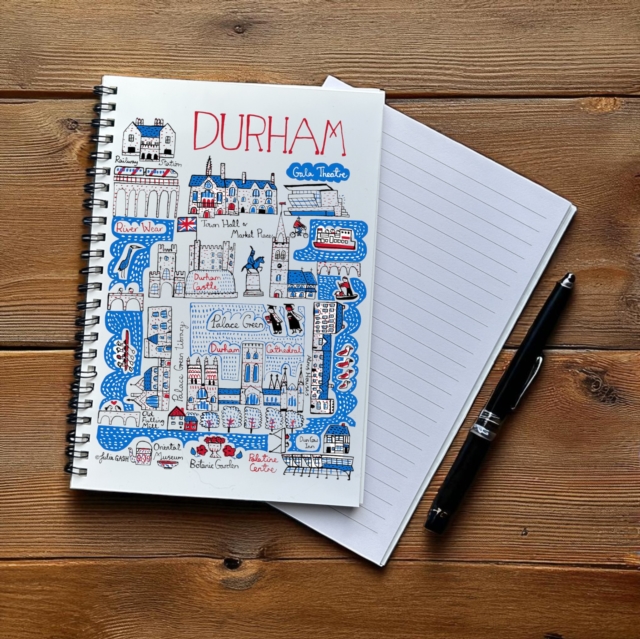 DURHAM
Railway Station
Gala Theatre
River Wear
Town Hall &
Market Place
Durham
Castle
Palace Green
Palace Green Library
Durham Cathedral
Old
Fulling
Mill
Oriental
Museum
Botanic Garden
Palatine
Centre
Dun Cow
Inn
©Julia Gash